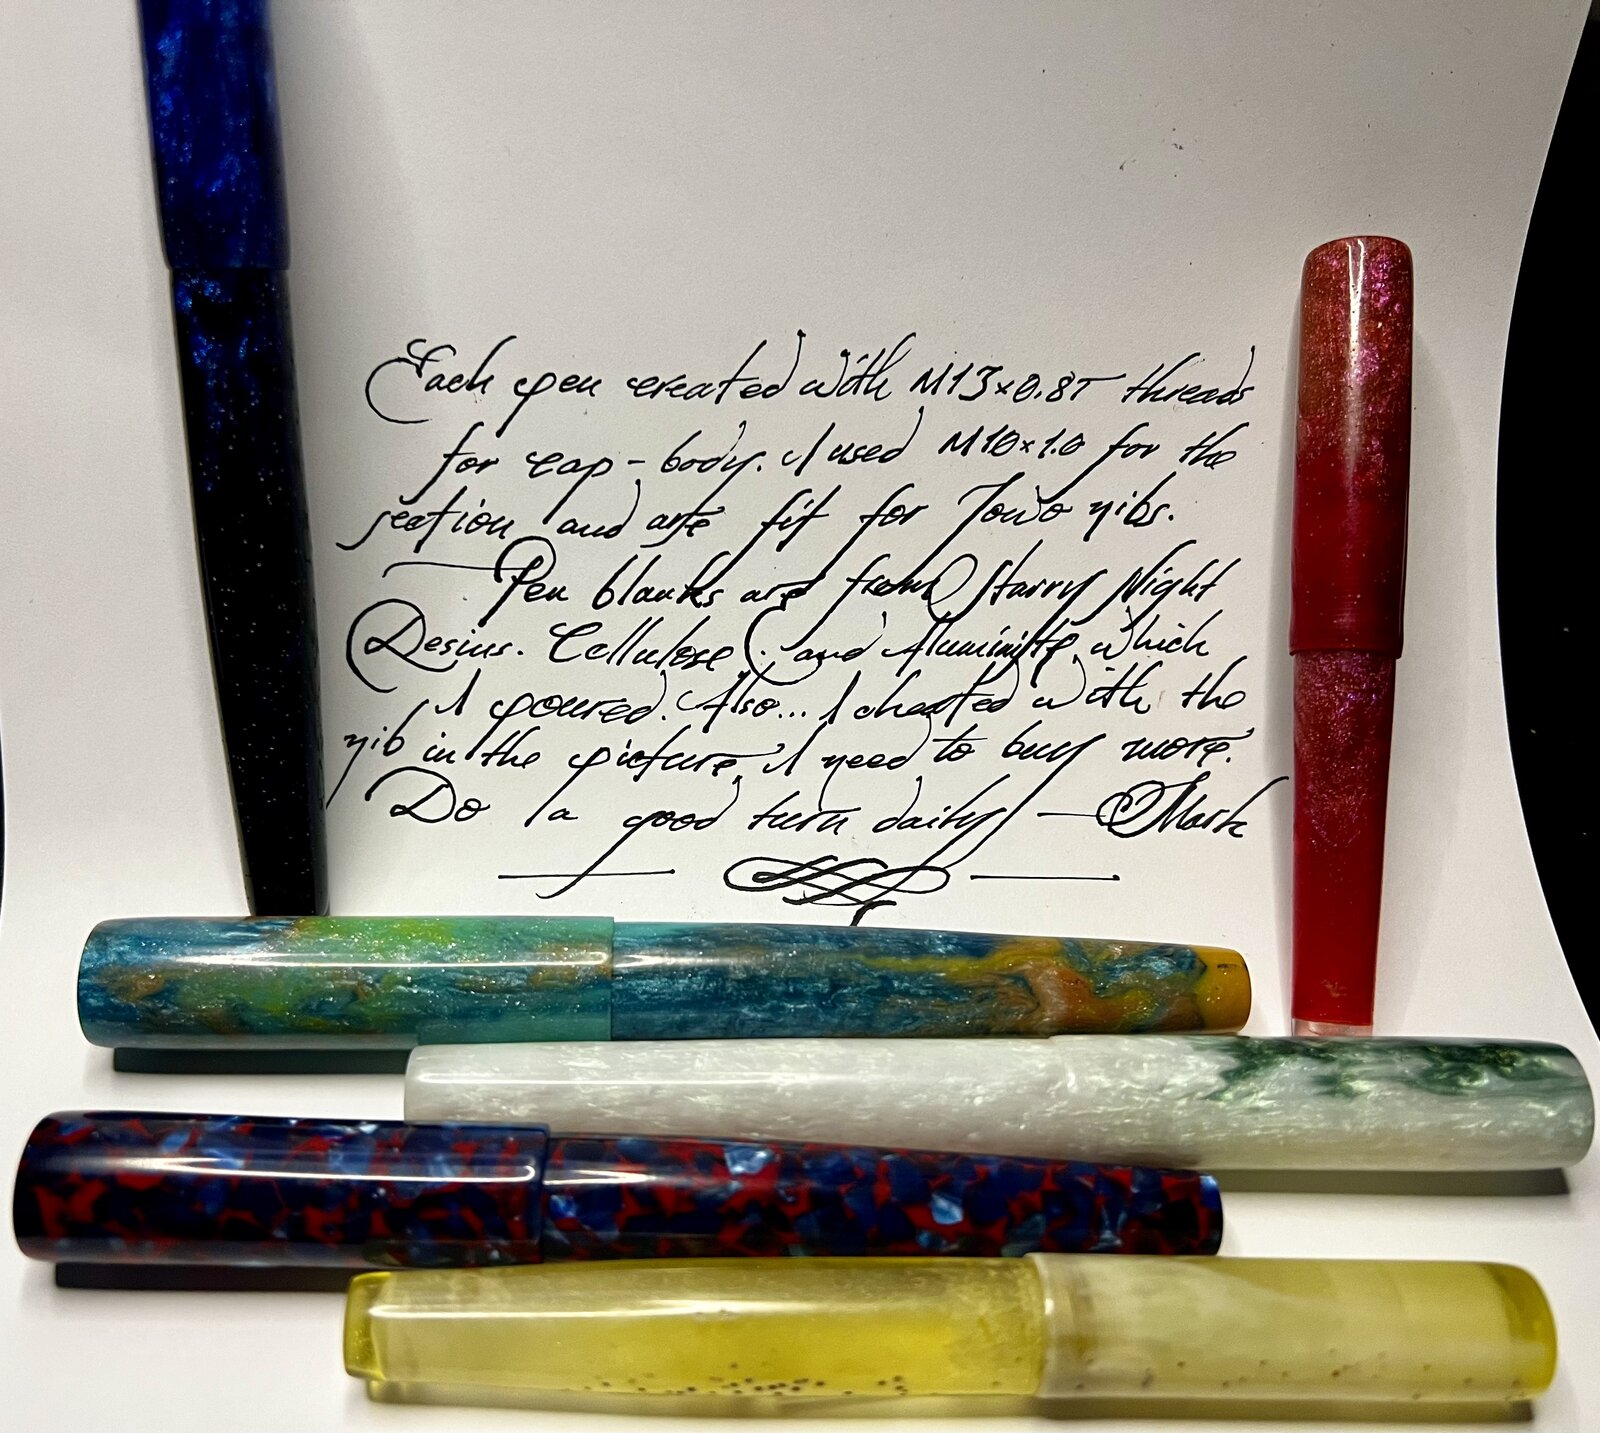 Each pen created with M13×0.8T threads
for cap-body. I used M10×1.0 for the
section and are fit for Jowo nibs.
Pen blanks are from Starry Night
Desins. Cellulose. and Aluminite which
I poured. Also... I cheated with the
nib in the picture I need to buy more.
Do a good turn daily — Mark